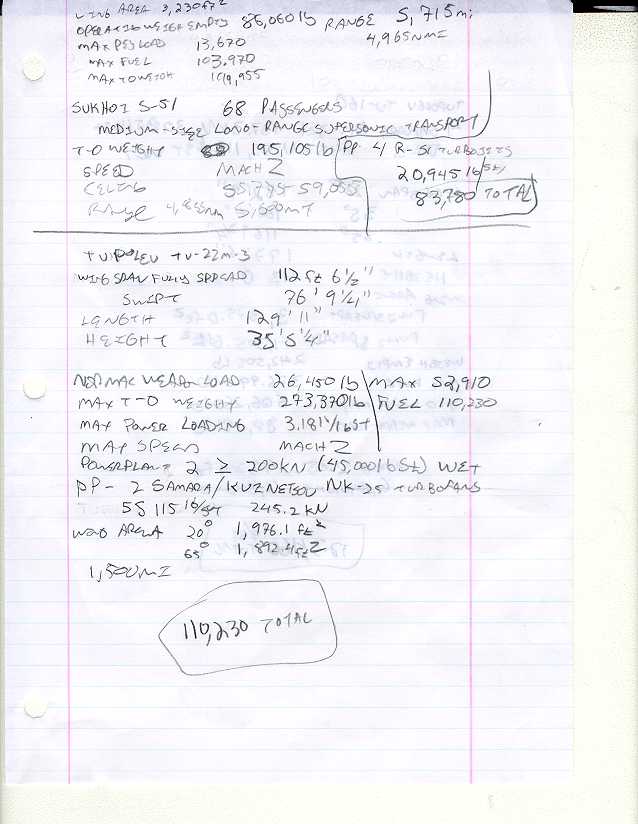 WING AREA 3,230 ft2
OPERATING WEIGHT EMPTY 86,060 lb RANGE 5,715 mi
MAX PAYLOAD 13,670 4,965 NMI
MAX FUEL 103,970
MAX TO WEIGH
SUKHOI S-51 68 PASSENGERS
MEDIUM-SIZE LONG-RANGE SUPERSONIC TRANSPORT
T-O WEIGHT 195,105 lb PP 4 TURBOJETS
SPEED MACH 2 20,945 lb/st
CELING 59,055 83,780 TOTAL
Range
TUPOLEV TU-22M-3
WING SPAN FULLY SPREAD 112 ft 6 1/2"
SWEPT 76' 9 1/4"
LENGTH 129' 11"
HEIGHT 35' 5 1/4"
NORMAL WEAPON LOAD 26,450 lb MAX 52,910
MAX T-O WEIGHT 273,370 lb FUEL 110,230
MAX POWER LOADING 3.18 lb/lb st
MAX SPEED MACH 2
POWERPLANT 2 ≥ 200kN (45,000 lb st) WET
PP- 2 SAMARA/KUZNETSOV NK-25 TURBOFANS
55 115 lb/st 245.2 kN
WING AREA 20° 1,976.1 ft2
65° 1,892.4 ft2
1,500 MI
110,230 TOTAL